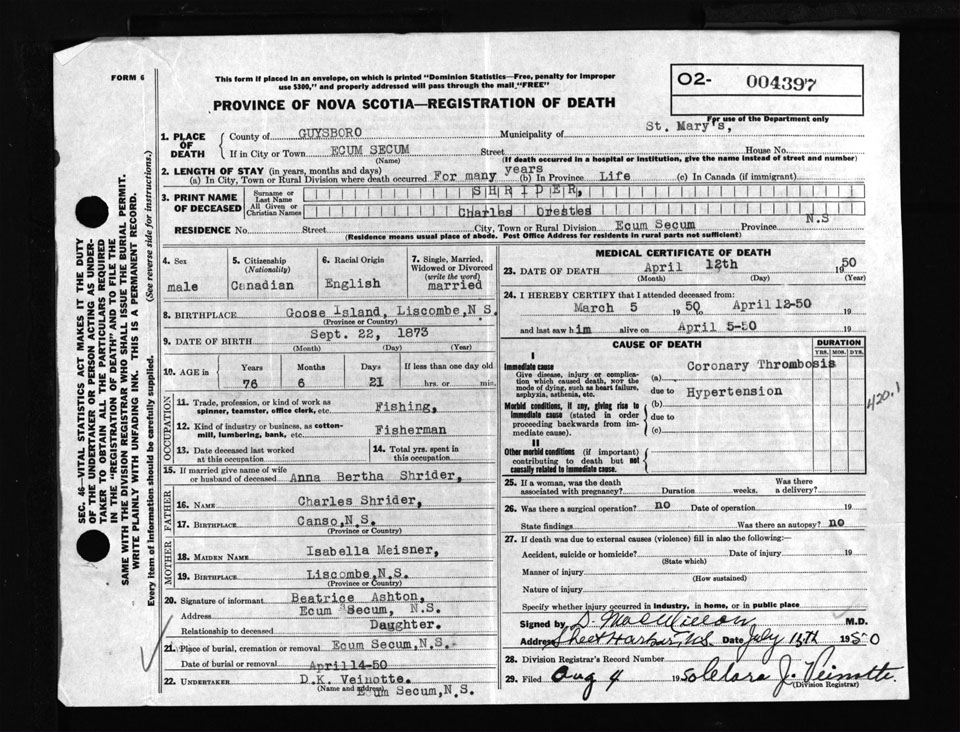 FORM 6
This form if placed in an envelope, on which is printed "Dominion Statistics—Free, penalty for improper
use $300," and properly addressed will pass through the mail "FREE"
O2- 004397
For use of the Department only
PROVINCE OF NOVA SCOTIA—REGISTRATION OF DEATH
1. PLACE OF DEATH
County of GUYSBORO Municipality of St. Mary's,
If in City or Town ECUM SECUM Street House No.
(Name) (If death occurred in a hospital or institution, give the name instead of street and number)
2. LENGTH OF STAY (in years, months and days)
(a) In City, Town or Rural Division where death occurred For many years (b) In Province Life (c) In Canada (if immigrant)
3. PRINT NAME OF DECEASED
Surname or Last Name SHRIDER,
All Given or Christian Names Charles Orestes
RESIDENCE No. Street City, Town or Rural Division Ecum Secum Province N.S
(Residence means usual place of abode. Post Office Address for residents in rural parts not sufficient)
4. Sex male
5. Citizenship (Nationality) Canadian
6. Racial Origin English
7. Single, Married, Widowed or Divorced (write the word) married
8. BIRTHPLACE Goose Island, Liscombe, N.S.
(Province or Country)
9. DATE OF BIRTH Sept. 22, 1873
(Month) (Day) (Year)
10. AGE in Years Months Days If less than one day old
76 6 21 hrs. or min.
OCCUPATION
11. Trade, profession, or kind of work as spinner, teamster, office clerk, etc. Fishing,
12. Kind of industry or business, as cotton-mill, lumbering, bank, etc. Fisherman
13. Date deceased last worked at this occupation
14. Total yrs. spent in this occupation
15. If married give name of wife or husband of deceased Anna Bertha Shrider,
FATHER
16. NAME Charles Shrider,
17. BIRTHPLACE Canso, N.S.
(Province or Country)
MOTHER
18. MAIDEN NAME Isabella Meisner,
19. BIRTHPLACE Liscombe, N.S.
(Province or Country)
20. Signature of informant Beatrice Ashton,
Address Ecum Secum, N.S.
Relationship to deceased Daughter.
21. Place of burial, cremation or removal Ecum Secum, N.S.
Date of burial or removal April 14-50
22. UNDERTAKER D.K. Veinotte.
(Name and address) Ecum Secum, N.S.
MEDICAL CERTIFICATE OF DEATH
23. DATE OF DEATH April 12th 1950
(Month) (Day) (Year)
24. I HEREBY CERTIFY that I attended deceased from:
March 5 1950 to April 12-50 19
and last saw him alive on April 5-50 19
CAUSE OF DEATH
DURATION
YRS. MOS. DYS.
I
Immediate cause
Give disease, injury or complication which caused death, NOT the mode of dying, such as heart failure, asphyxia, asthenia, etc.
(a) Coronary Thrombosis
due to Hypertension
420.1
Morbid conditions, if any, giving rise to immediate cause (stated in order proceeding backwards from immediate cause).
(b)
due to
(c)
II
Other morbid conditions (if important) contributing to death but not causally related to immediate cause.
25. If a woman, was the death associated with pregnancy? Duration weeks. Was there a delivery?
26. Was there a surgical operation? no Date of operation 19
State findings Was there an autopsy? no
27. If death was due to external causes (violence) fill in also the following:—
Accident, suicide or homicide? Date of injury 19
(State which)
Manner of injury
(How sustained)
Nature of injury
Specify whether injury occurred in industry, in home, or in public place
Signed by D. M.D.
Address Sheet Harbor, N.S. Date July 15th 1950
28. Division Registrar's Record Number
29. Filed Aug 4 1950 Clara J. Veinotte.
(Division Registrar)
SEC. 46—VITAL STATISTICS ACT MAKES IT THE DUTY
OF THE UNDERTAKER OR PERSON ACTING AS UNDER-
TAKER TO OBTAIN ALL THE PARTICULARS REQUIRED
IN THE "REGISTRATION OF DEATH" AND TO FILE THE
SAME WITH THE DIVISION REGISTRAR WHO SHALL ISSUE THE BURIAL PERMIT.
WRITE PLAINLY WITH UNFADING INK. THIS IS A PERMANENT RECORD.
Every item of information should be carefully supplied. (See reverse side for instructions.)